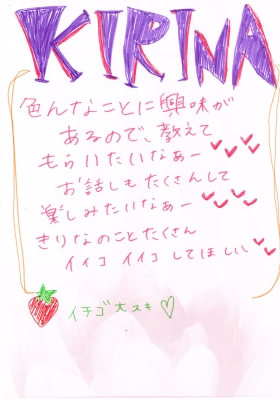 KIRINA
色んなことに興味が
あるので、教えて
もらいたいなぁー
お話しもたくさんして
楽しみたいなぁー
きりなのことたくさん
イイコ イイコ してほしい
イチゴ大スキ♡